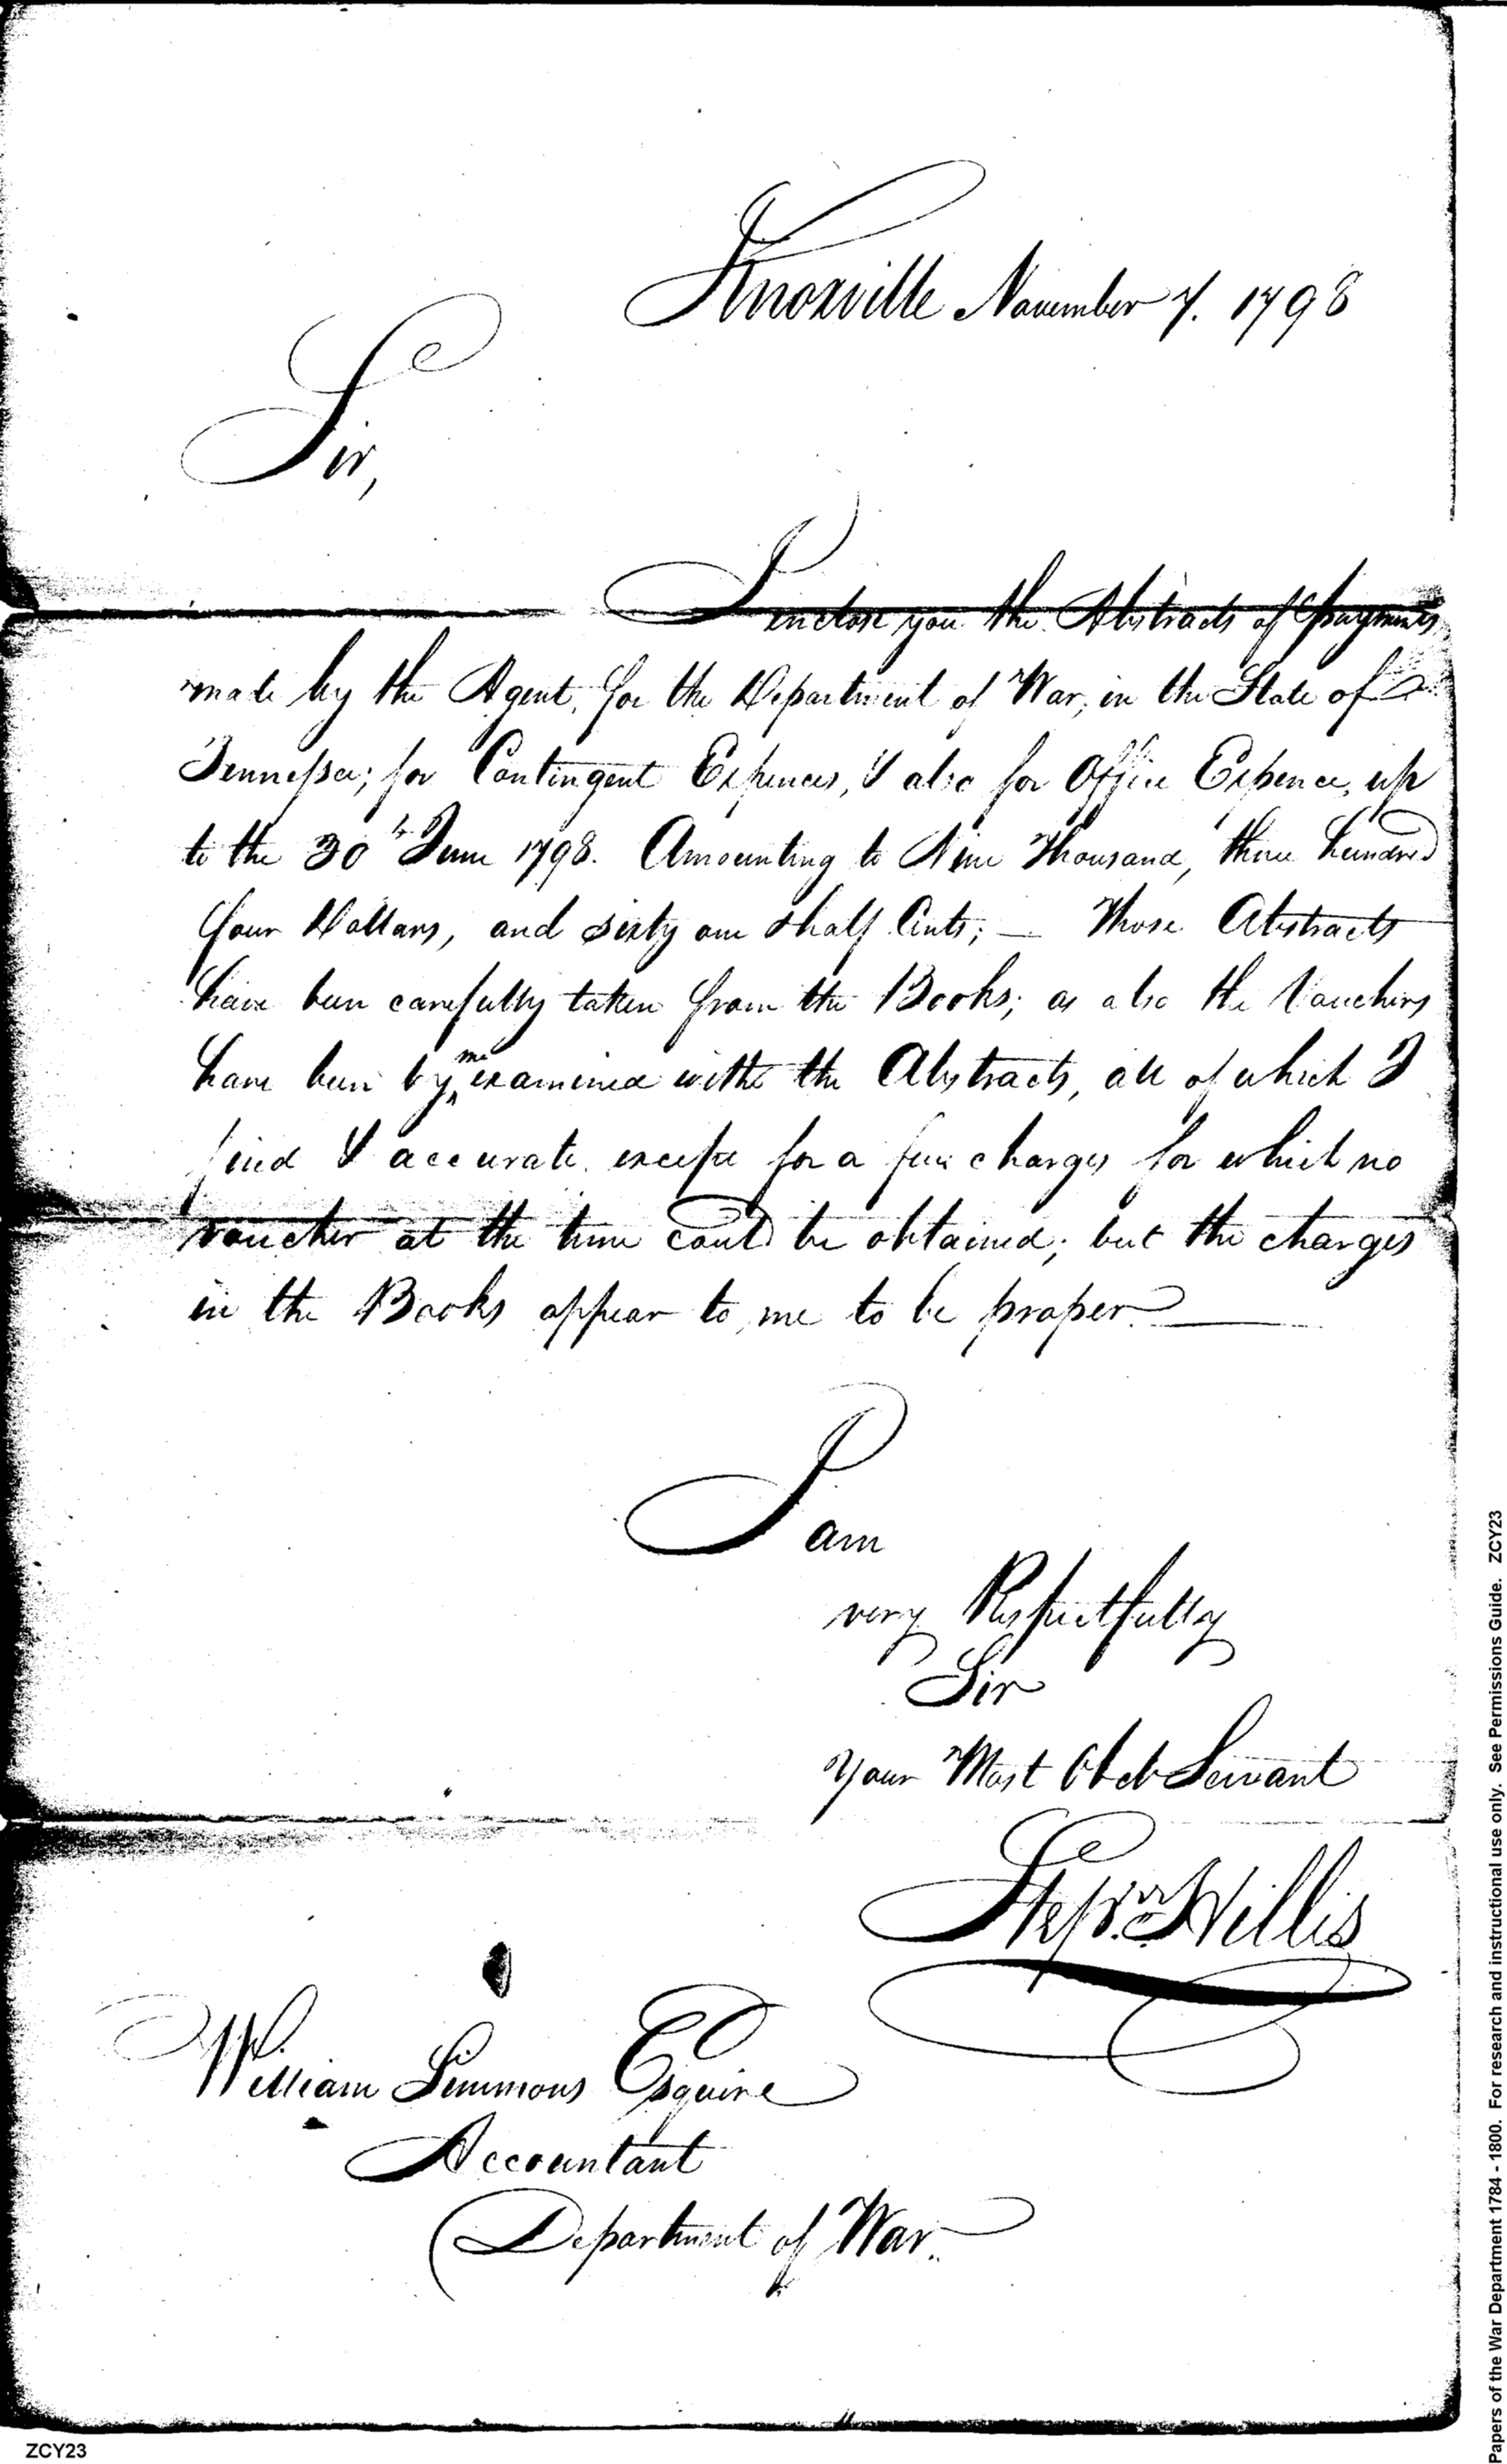 Knoxville November 7. 1798
Sir,
I enclose you the Abstracts of payments
made by the Agent, for the Department of War, in the State of
Tennessee; for Contingent Expences, & also for Office Expence, up
to the 30th June 1798. Amounting to Nine Thousand, three hundred
four Dollars, and sixty one & half Cents; — Those Abstracts
have been carefully taken from the Books; as also the Vouchers
have been by me examined withe the Abstracts, all of which I
find & accurate, except for a few charges for which no
voucher at the time could be obtained; but the charges
in the Books appear to me to be proper.
I am
very Respectfully
Sir
Your Most Obed Servant
Stepn. Hillis
William Simmons Esquire
Accountant
Department of War.
ZCY23
Papers of the War Department 1784 - 1800. For research and instructional use only. See Permissions Guide. ZCY23